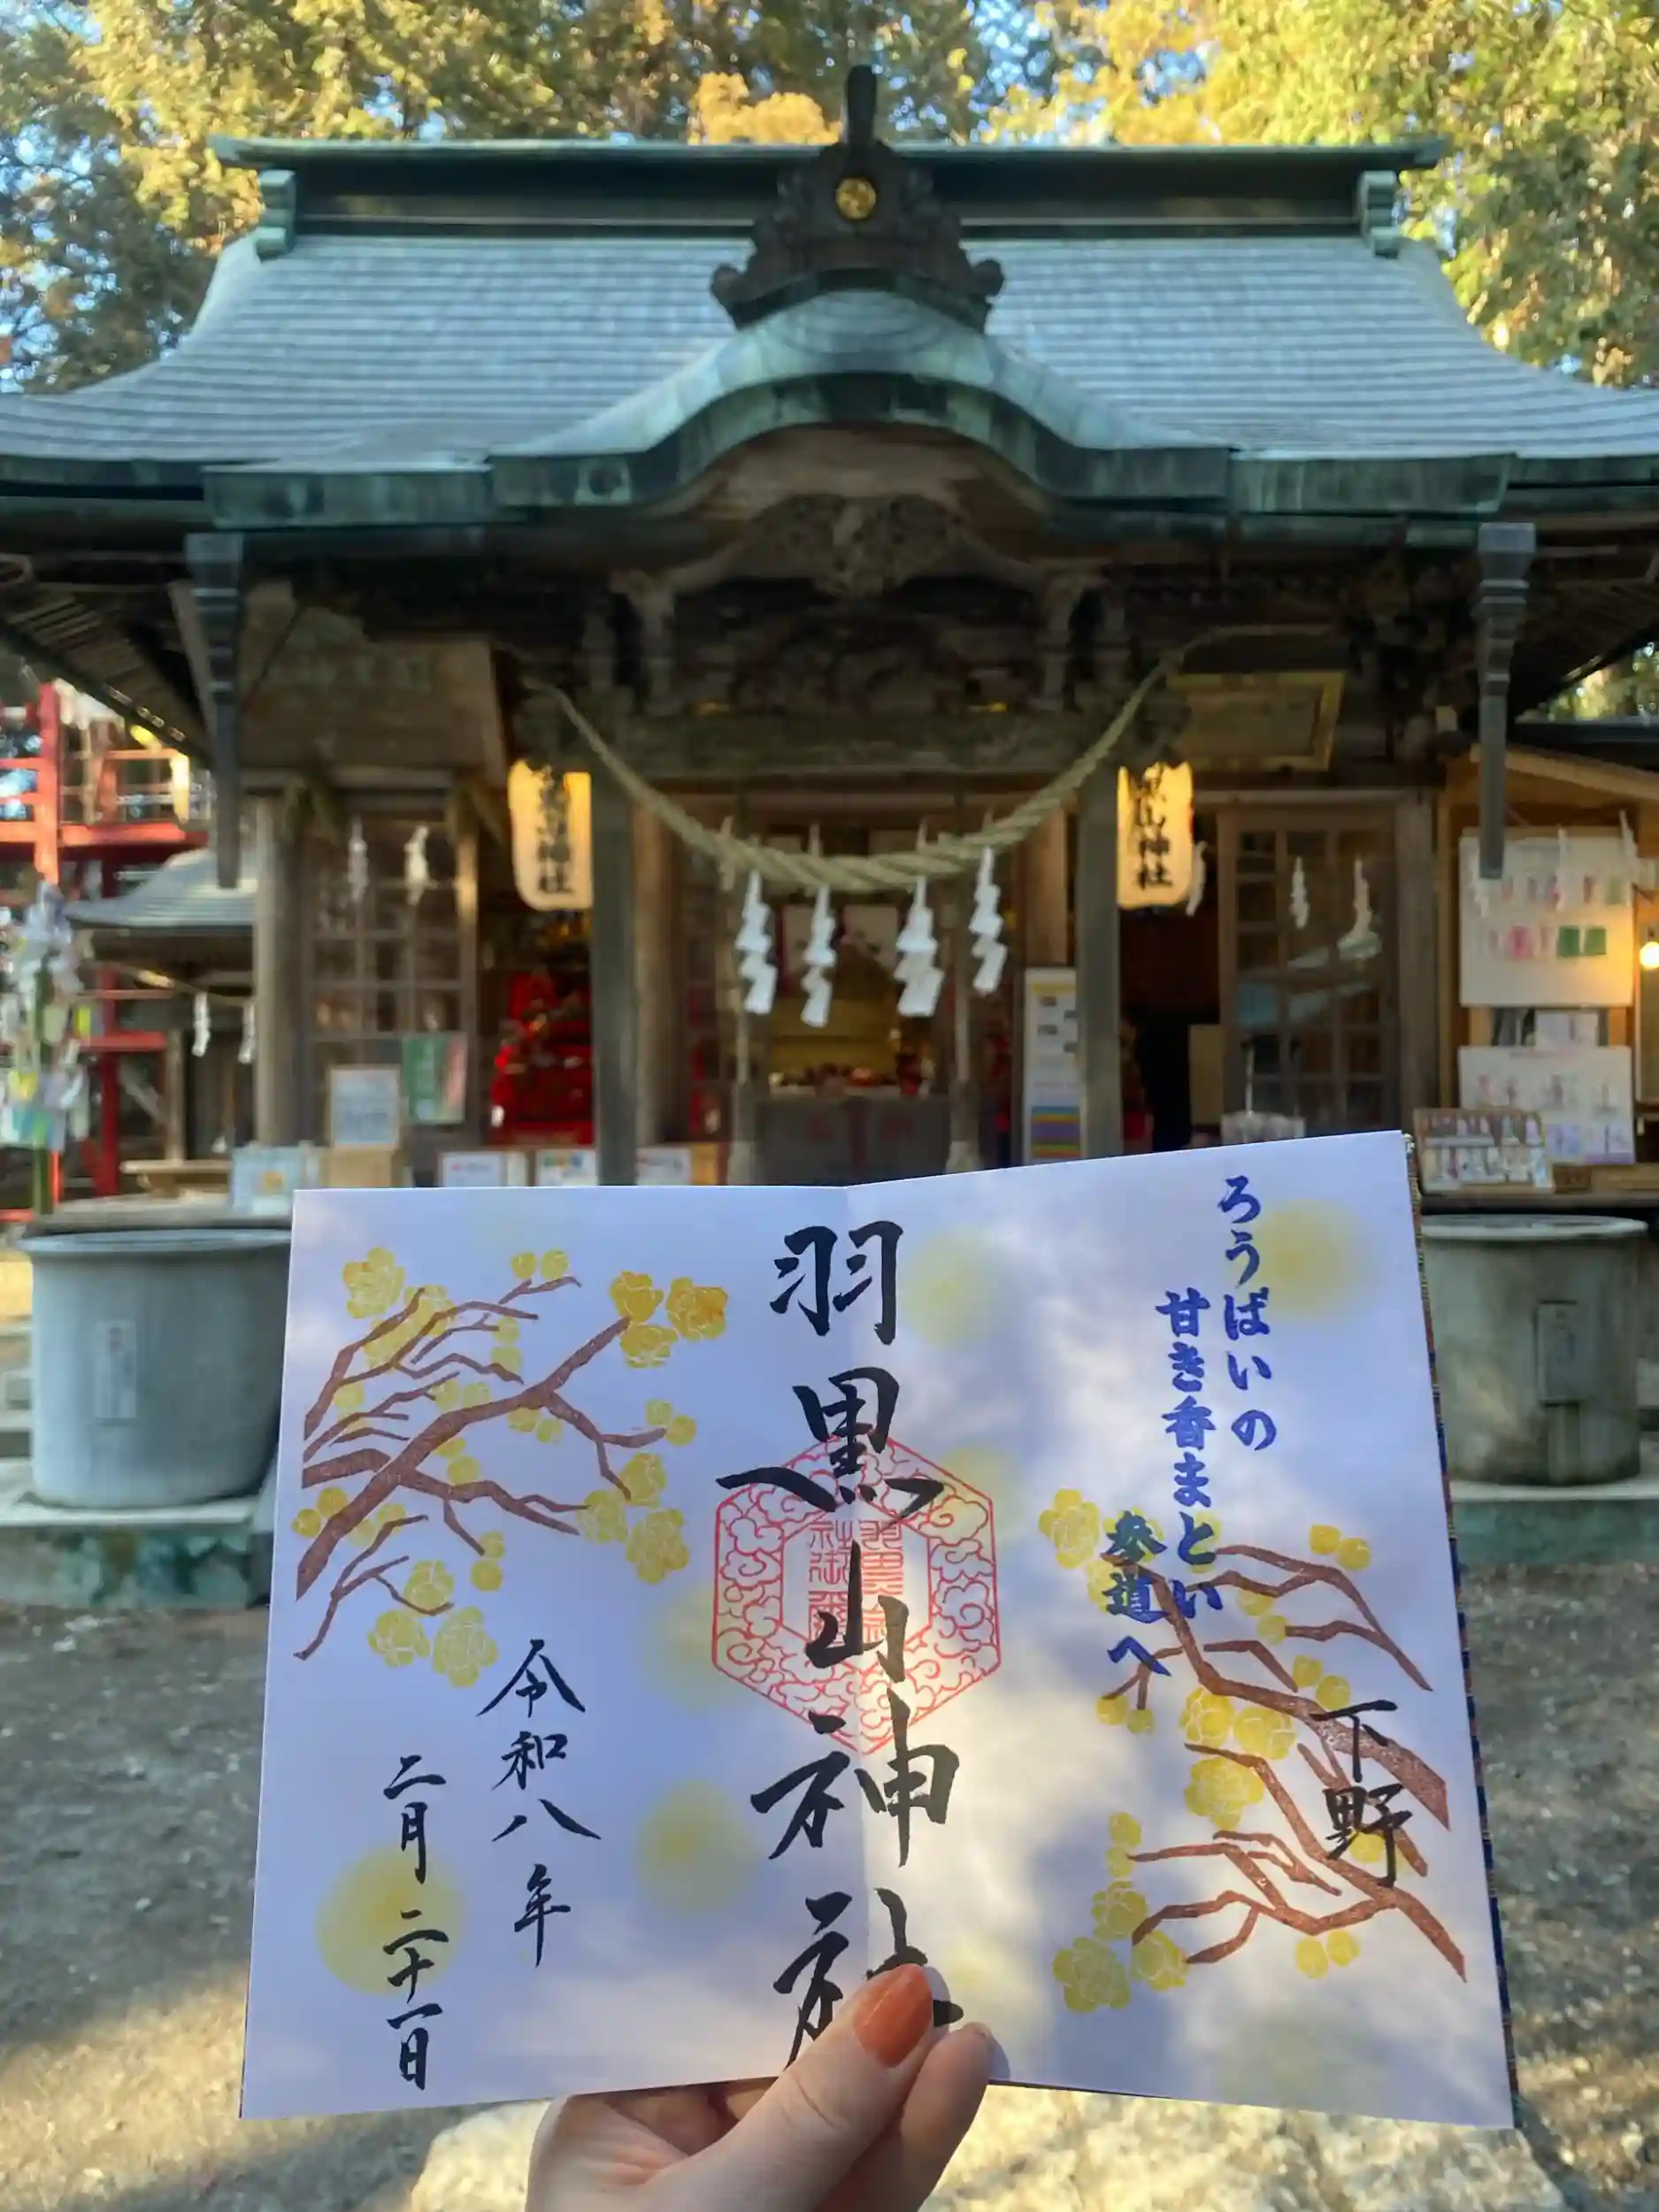 ろうばいの
甘き香まとい
参道へ
下野
羽黒山神社
令和八年
二月二十一日
神社
山神社